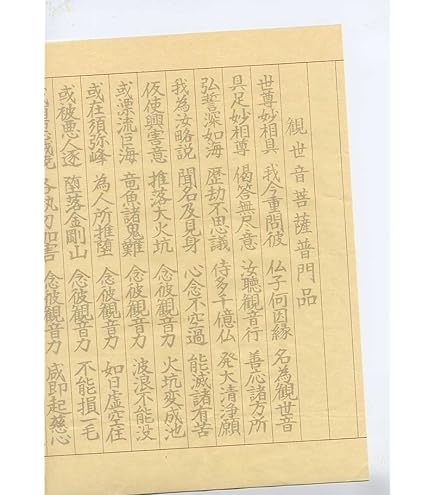 觀世音菩薩普門品
世尊妙相具 我今重問彼 仏子何因縁 名為観世音
具足妙相尊 偈答無尽意 汝聴観音行 善応諸方所
弘誓深如海 歴劫不思議 侍多千億仏 発大清浄願
我為汝略説 聞名及見身 心念不空過 能滅諸有苦
仮使興害意 推落大火坑 念彼観音力 火坑変成池
或漂流巨海 竜魚諸鬼難 念彼観音力 波浪不能没
或在須弥峰 為人所推堕 念彼観音力 如日虚空住
或被悪人逐 堕落金剛山 念彼観音力 不能損一毛
各執刀加害 念彼観音力 咸即起慈心